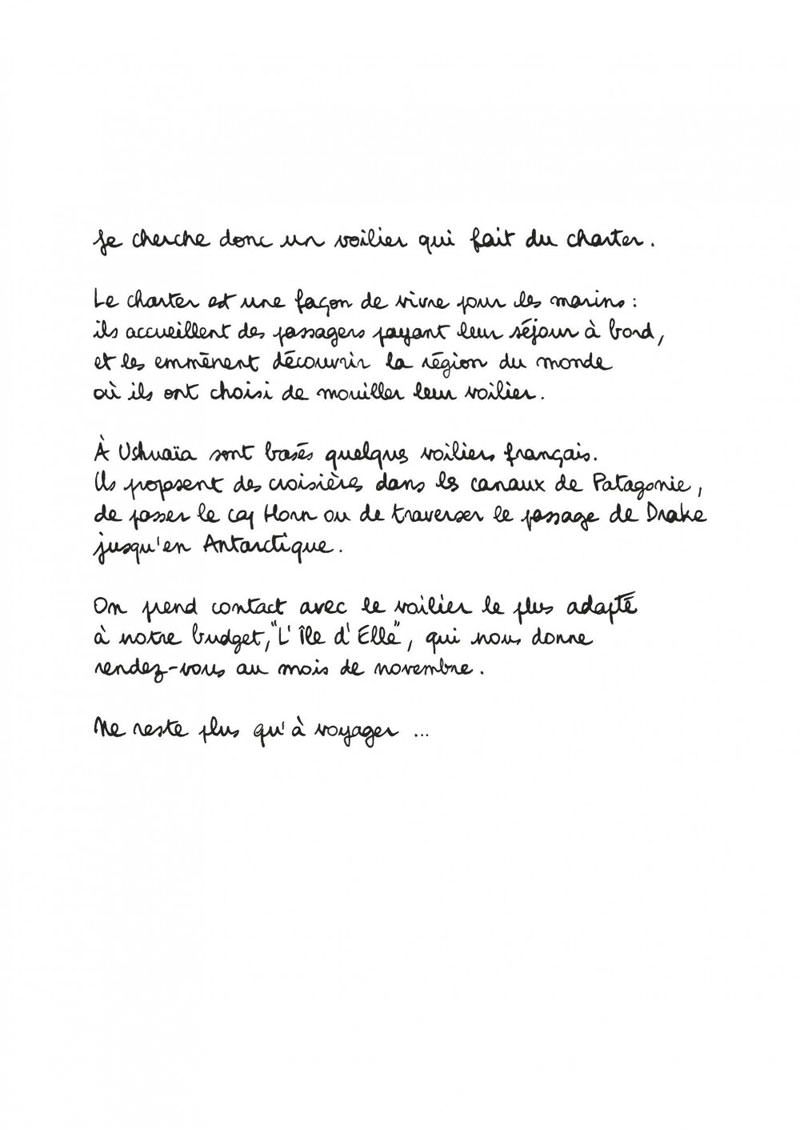 Je cherche donc un voilier qui fait du charter.
Le charter est une façon de vivre pour les marins :
ils accueillent des passagers payant leur séjour à bord,
et les emmènent découvrir la région du monde
où ils ont choisi de mouiller leur voilier.
À Ushuaïa sont basés quelques voiliers français.
Ils proposent des croisières dans les canaux de Patagonie,
de passer le cap Horn ou de traverser le passage de Drake
jusqu'en Antarctique.
On prend contact avec le voilier le plus adapté
à notre budget, "L'Île d'Elle", qui nous donne
rendez-vous au mois de novembre.
Ne reste plus qu'à voyager ...